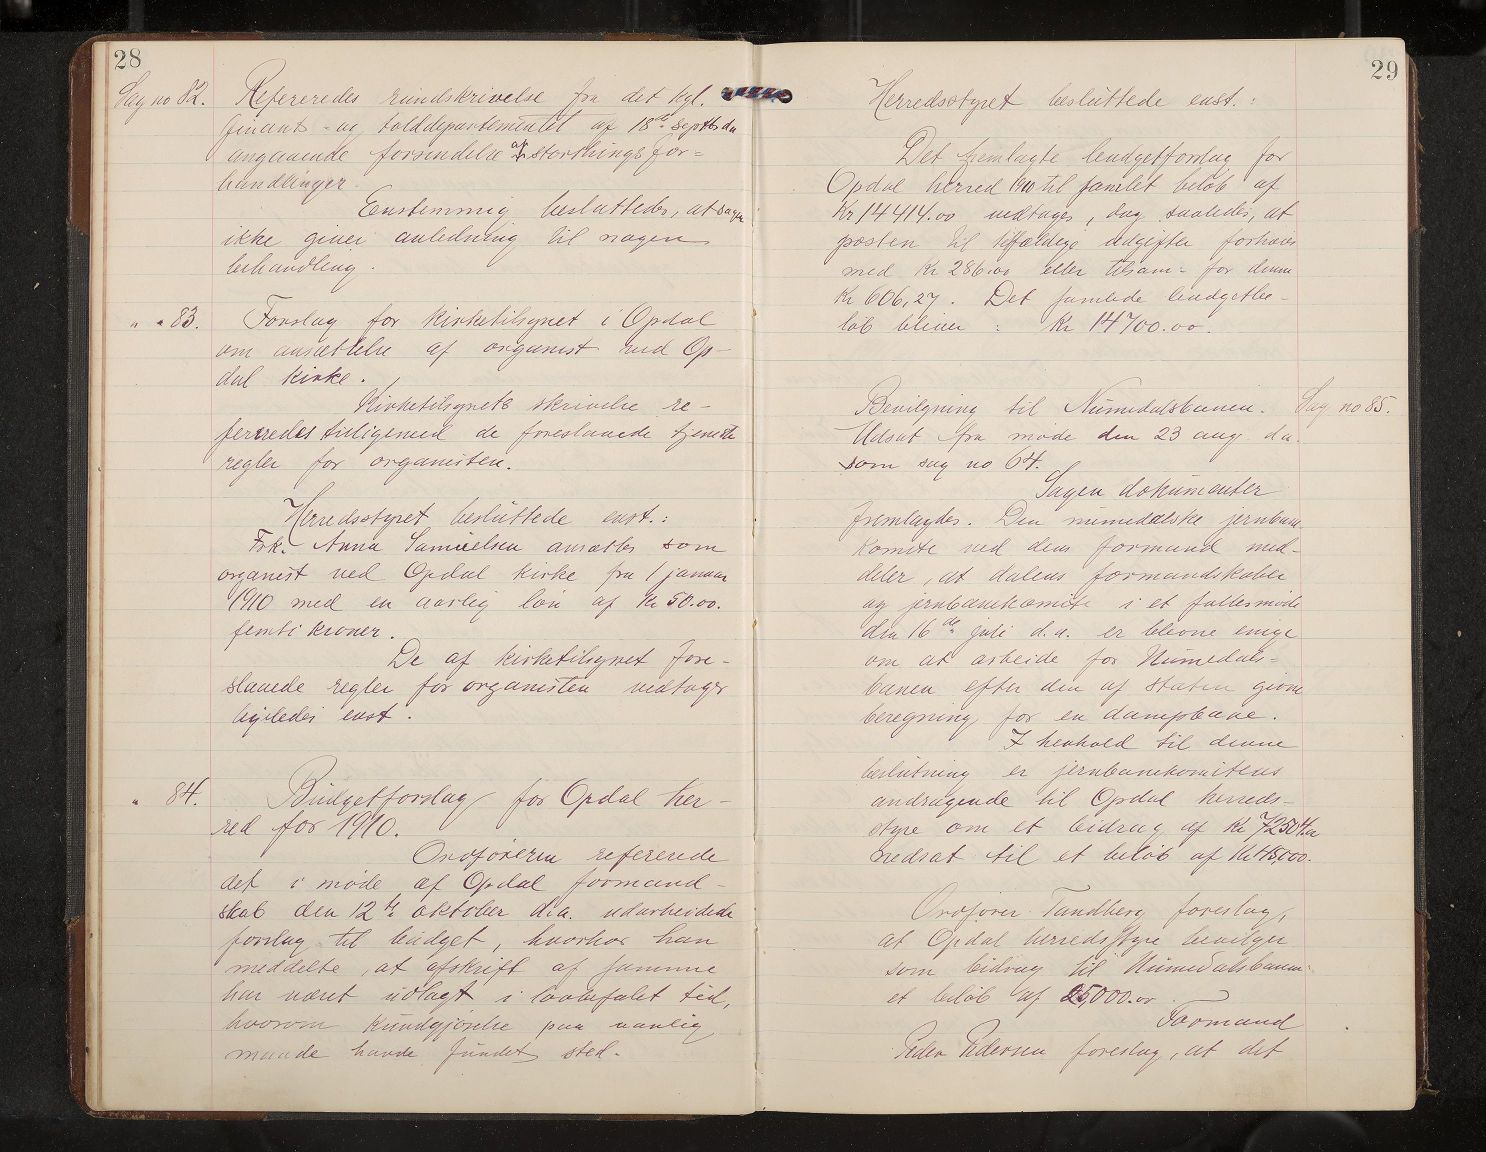 28
Sag no 82. Refereredes rundskrivelse fra det kgl.
finants- og tolddepartementet af 18de septbr da
angaaende forsendelse af storthingsfor=
handlinger.
Enstemmig besluttedes, at sagen
ikke giver anledning til nogen
behandling.
" " 83. Forslag for kirketilsynet i Opdal
om ansættelse af organist ved Op-
dal kirke.
Kirketilsynets skrivelse re-
fereredes tilligemed de foreslaaede tjeneste
regler for organisten.
Herredsstyret besluttede enst.:
Frk. Anna Samuelsen ansættes som
organist ved Opdal kirke fra 1 januar
1910 med en aarlig løn af Kr 50.00.
femti kroner.
De af kirketilsynet fore-
slaaede regler for organisten vedtages
ligeledes enst.
" 84. Budgetforslag for Opdal her-
red for 1910.
Ordføreren refererede
det i møde af Opdal formand-
skab den 12te oktober d.a. udarbeidede
forslag til budget, hvorhos han
meddelte, at afskrift af samme
har været udlagt i lovbefalet tid,
hvorom kundgjørelse paa vanlig
maade havde fundet sted.
29
Herredsstyret besluttede enst.:
Det fremlagte budgetforslag for
Opdal herred 1910 til samlet beløb af
Kr 14414.00 vedtages, dog saaledes, at
posten til tilfældige udgifter forhøies
med Kr 286.00 eller tilsam= for denne
Kr 606,27. Det samlede budgetbe-
løb bliver : Kr 14700.00.
Bevilgning til Numedalsbanen. Sag no 85.
Udsat fra møde den 23 aug. d.a.
som sag no 64.
Sagens dokumenter
fremlagdes. Den numedalske jernban
komite ved dens formand med-
deler, at dalens formandskaber
og jernbanekomite i et fællesmøde
den 16de juli d.a. er blevne enige
om at arbeide for Numedals-
banen efter den af staten givne
beregning for en dampbane.
I henhold til denne
beslutning er jernbanekomiteens
andragende til Opdal herreds-
styre om et bidrag af Kr
nedsat til et beløb af Kr 45000.
Ordfører Tandberg foreslog,
at Opdal herredsstyre bevilger
som bidrag til Numedalsbanen
et beløb af 25000.00
Formand
Peder Pedersen foreslog, at det